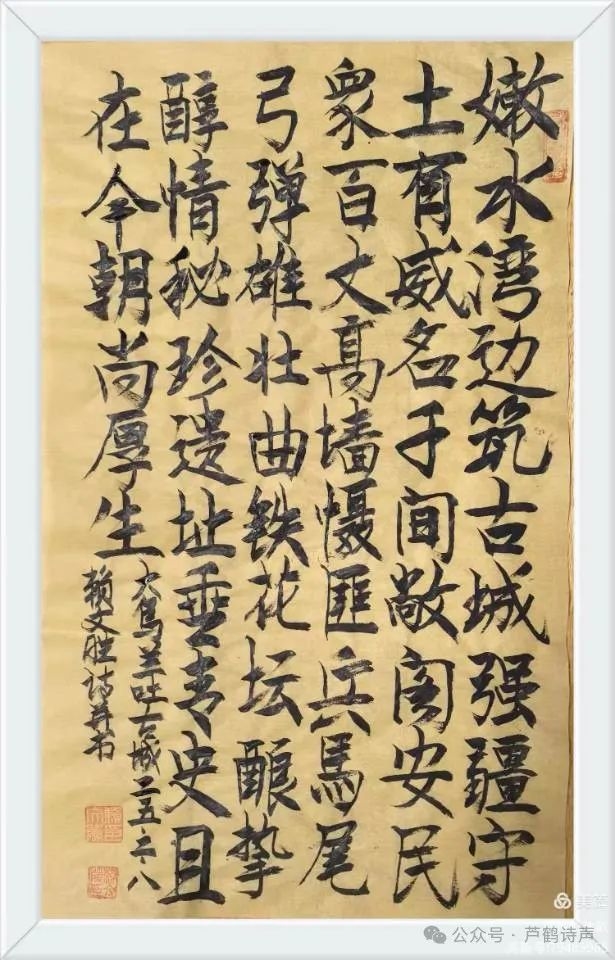 嫩水湾边筑古城强疆守
土有威名千间敞阁安民
衆百丈高墙慑匪兵馬尾
弓弹雄壮曲铁花坛酿挚
醇情秘珍遗址垂青史且
在今朝尚厚生
大乌兰吐古城二五
赖文胜诗并书
美篇
公众号·芦鹤诗声